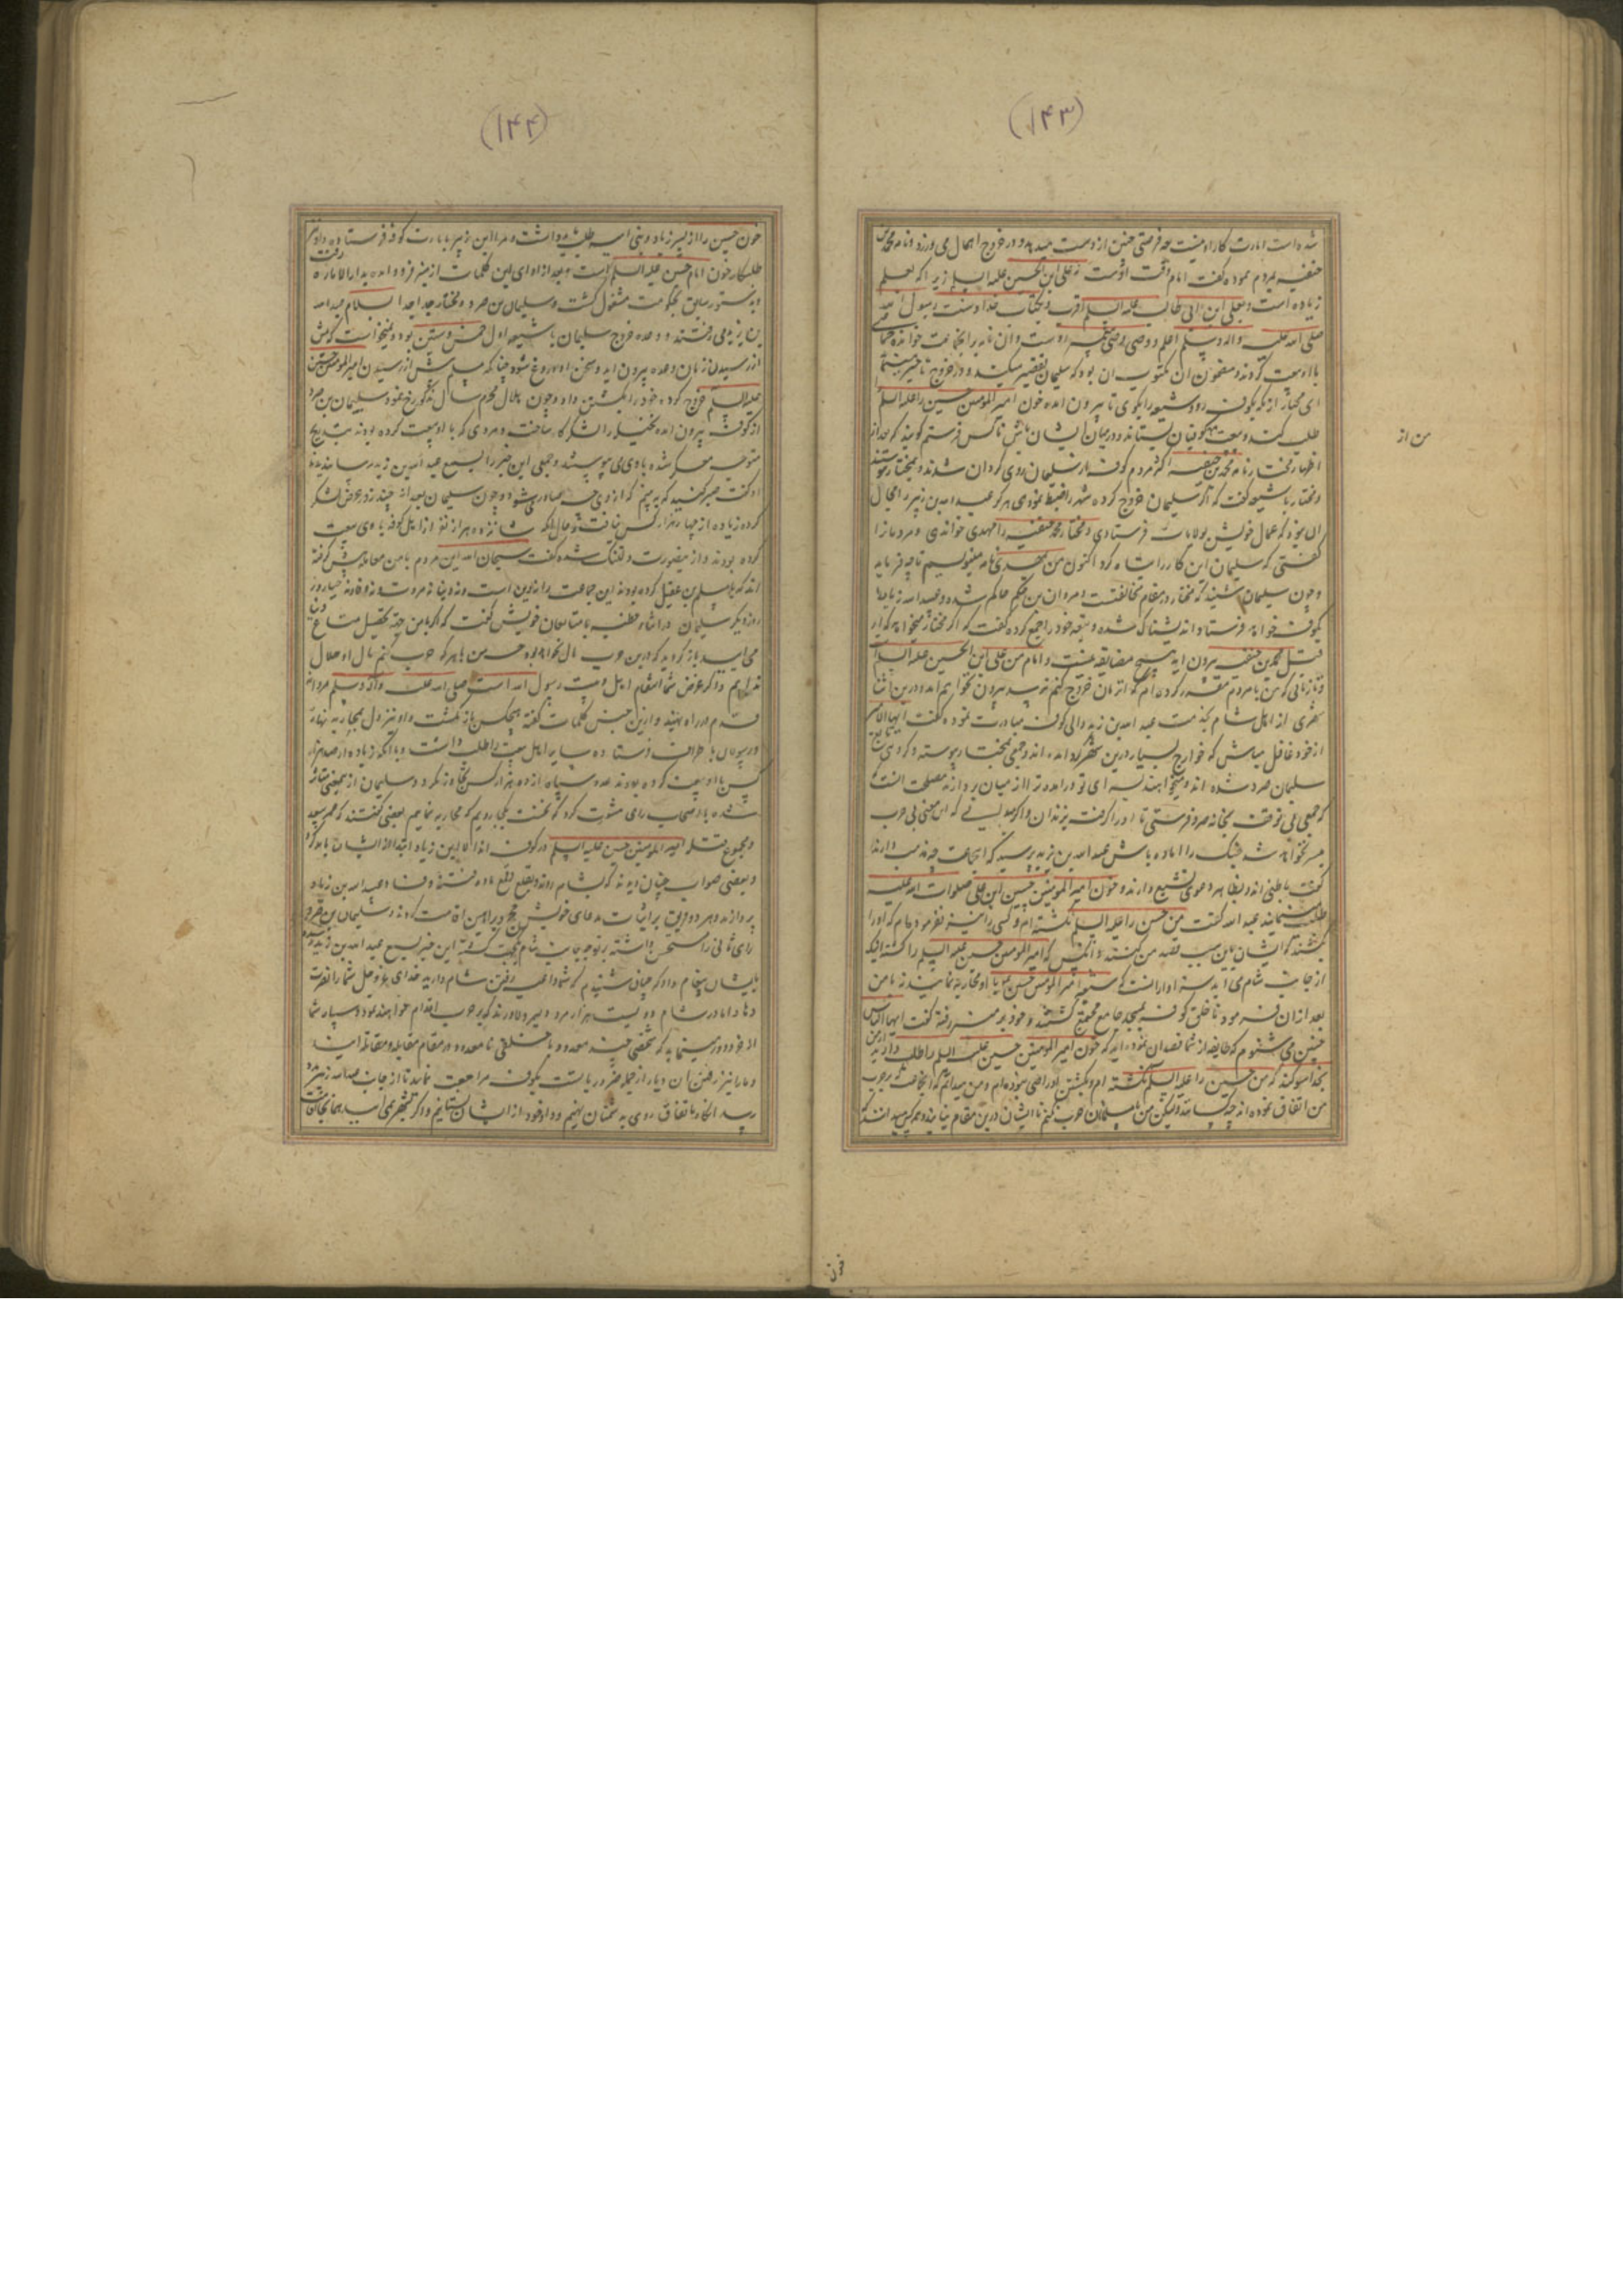 (۱۴۳)
شده است امارت کار او نیست چه فرصتی چنین از دست میدهد و در خروج اهمال می ورزد و نام محمد بن
حنفیه بمردم نموده گفت امام وقت اوست نه علی ابن الحسین علیه السلام زیرا که بعلم
زیاده است و بعلی ابن ابی طالب علیه السلام اقرب و بکتاب خدا و سنت رسول الله
صلی الله علیه واله وسلم اعلم و وصی وصی پیغمبر اوست و ان نامه بر انجماعت خوانده
با او بیعت کردند و مضمون ان مکتوب ان بود که سلیمان تقصیر میکند و در خروج تاخیر
ای مختار از مکه بکوفه رو و شیعه را بکوی تا بیرون امده خون امیر المومنین حسین را علیه السلام
طلب کنند و بیعت از کوفیان بستاند و در میان ایشان باش تا کس فرستم
اظهار مختار نامه محمد بن حنفیه اکثر مردم کوفه از سلیمان روی گردان شدند و بمختار پیوستند
و مختار با شیعه گفت که اگر سلیمان خروج کرده شهر را ضبط نمودی هرگز عبدالله بن زبیر را مجال
ان نبود که عمال خویش بولایات فرستادی و مختار محمد حنفیه را مهدی خواندی و مردمانرا
گفتی که سلیمان این کار را تباه کرد اکنون من بمهدی نامه مینویسم تا چه فرماید
و چون سلیمان شنید که مختار در مقام مخالفتست و مروان بن حکم حاکم شده و عبیدالله زیاد را
بکوفه خواهد فرستاد اندیشناک شده و تبعه خود را جمع کرده گفت که اگر مختار میخواهد که از
قبل محمد بن حنفیه بیرون اید هیچ مضایقه نیست و امام من علی ابن الحسین علیه السلام است
و تا زمانی که من با مردم مقرر کرده ام که در ان زمان خروج کنم نرسد بیرون نخواهم امد و درین اثنا
شخصی از اهل شام بخدمت عبد الله بن زید والی کوفه مبادرت نموده گفت ایها الامیر
از خود غافل مباش که خوارج بسیار درین شهر در امده اند و جمعی بمختار پیوسته و گروهی تابع
سلیمان صرد شده اند و میخواهند بسرای تو در امده ترا از میان بردارند مصلحت انست
که جمعی بی توقف بخانه صرد فرستی تا او را گرفته بزندان
میسر نخواهد شد جنگ را اماده باش عبد الله بن یزید پرسید که انجماعت چه مذهب دارند
گفت باطنی اند و بظاهر دعوی تشیع دارند و خون امیر المومنین حسین ابن علی صلوات الله علیه
طلب مینمایند عبد الله گفت من حسین را علیه السلام نکشته ام و کسی را نیز نفرموده ام که او را
بکشند که ایشان باین سبب قصد من کنند و انکس که امیر المومنین حسین علیه السلام را کشته اینک
از جانب شام می اید
بعد از ان فرمود تا خلق کوفه بمسجد جامع مجتمع گشتند و خود بر منبر رفته گفت ایها الناس
چنین می شنوم که طایفه از شما قصد ان نموده اید که خون امیر المومنین حسین علیه السلام را طلب دارید از من
بخدا سوگند که من حسین را علیه السلام نکشته ام و بکشتن او راضی نبوده ام و من میدانم که انجماعت که بر حرب
من اتفاق نموده اند چه کسانند و لیکن من با مسلمانان حرب نکنم تا ایشان درین مقام نیایند
من از
(۱۴۴)
خون حسین را از پسر زیاد و بنی امیه طلب باید داشت و مرا ابن زبیر بامارت کوفه فرستاده و او نیز
طلبکار خون امام حسین علیه السلام است بعد از ادای این کلمات از منبر فرود امده بدار الاماره رفت
و بدستور سابق بحکومت مشغول گشت و سلیمان بن صرد و مختار جدا جدا بسلام عبد الله
بن یزید می رفتند و وعده خروج سلیمان با شیعه اول خمس و ستین بود و نمیخواست که پیش
از رسیدن زمان وعده بیرون اید و سخن او دروغ شود چنانکه مسلم پیش از رسیدن امیر المومنین حسین
علیه السلام خروج کرده خود را بکشتن داد و چون هلال محرم سال مذکور رخ نمود سلیمان بن صرد
از کوفه بیرون امده نخیله را لشکرگاه ساخت و مردمی که با او بیعت کرده بودند بتدریج
متوجه معسکر شده با وی می پیوستند و جمعی این خبر را بسمع عبد الله بن زید رسانیدند
او گفت صبر کنید که ببینم که از وی چه صادر میشود و چون سلیمان بعد از چند روز عرض لشکر
کرده زیاده از چهار هزار کس نیافت و حال انکه شانزده هزار نفر از اهل کوفه با وی بیعت
کرده بودند و از میصورت دلتنگ شده گفت سبحان الله این مردم با من معامله پیش گرفته
اند که با مسلم بن عقیل کرده بودند این جماعت را نه دین است و نه دنیا نه مروت نه وفا و نه حیا و روز
روز دیگر سلیمان در اثناء خطبه با متابعان خویش گفت که اگر با من جهت تحصیل متاع دنیا
می ایید باز گردید که درین حرب مال نخواهد بود
نداریم و اگر غرض شما انتقام اهل بیت رسول الله است صلی الله علیه واله وسلم مردانه
قدم در راه نهید و ازین جنس کلمات گفته هیچکس باز نگشت و او نیز دل بمحاربه نهاد
و رسولان باطراف فرستاده سایر اهل بیعت را طلب داشت و با انکه زیاده از صد هزار
کس با او بیعت کرده بودند عدد سپاه از ده هزار کس تجاوز نکرد و سلیمان ازین معنی متاثر
شده با اصحاب رای مشورت کرد که نخست بکجا رویم که محاربه نماییم بعضی گفتند که عمر سعد
و مجموع قتله امیر المومنین حسین علیه السلام در کوفه اند الا ابن زیاد ابتدا از ایشان باید کرد
و بعضی صواب چنان دیدند که بشام روند و بقلع و قمع ماده فتنه و فساد عبید الله بن زیاد
پردازند و هر دو فریق بر اثبات مدعای خویش حجج و براهین اقامت کردند و سلیمان بن صرد
رای ثانی را مستحسن داشته بتوجه جانب شام یکجهت گشت این خبر بسمع عبید الله بن زید رسیده
بایشان پیغام داد که چنان شنیدم که شما داعیه رفتن شام دارید خدای عز و جل شما را نصرت
دهاد اما در شام دویست هزار مرد دلیر و دلاورند که بر حرب اقدام خواهند نمود و سپاه شما
از خرد دور مینماید که شخصی چند معدود با خلقی نامعدود در مقام مقابله و مقاتله ایند
و ما را نیز رفتن ان دیار از جمله ضروریاتست بکوفه مراجعت نمایید تا از جانب عبدالله زبیر مدد
رسد انگاه باتفاق روی بدشمنان نهیم و داد خود از ایشان بستانیم